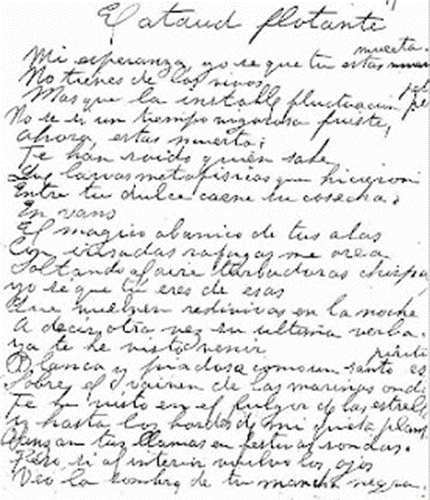 El ataud flotante
Mi esperanza, yo se que tu estas muerta.
No tienes de los vivos
Mas que la instable fluctuacion
No se si un tiempo vigorosa fuiste,
ahora, estas muerta;
Te han roido quien sabe
larvas metafisicas que hicieron
Entre tu dulce carne su cosecha.
En vano
El magico abanico de tus alas
Con irisadas rafagas me orea
Soltando al aire turbadoras chispas
yo se que tu eres de esas
Que vuelven redivivas en la noche
A decir otra vez su ultima verba.
ya te he visto venir
Blanca y piadosa como un santo espiritu
Sobre el vaiven de las marinas ondas
Te he visto en el fulgor de las estrellas
y hasta los bordes de mi quieta planta
Danzan tus llamas en festivas rondas.
Pero si al interior vuelvo los ojos
Veo la sombra de tu mancha negra.